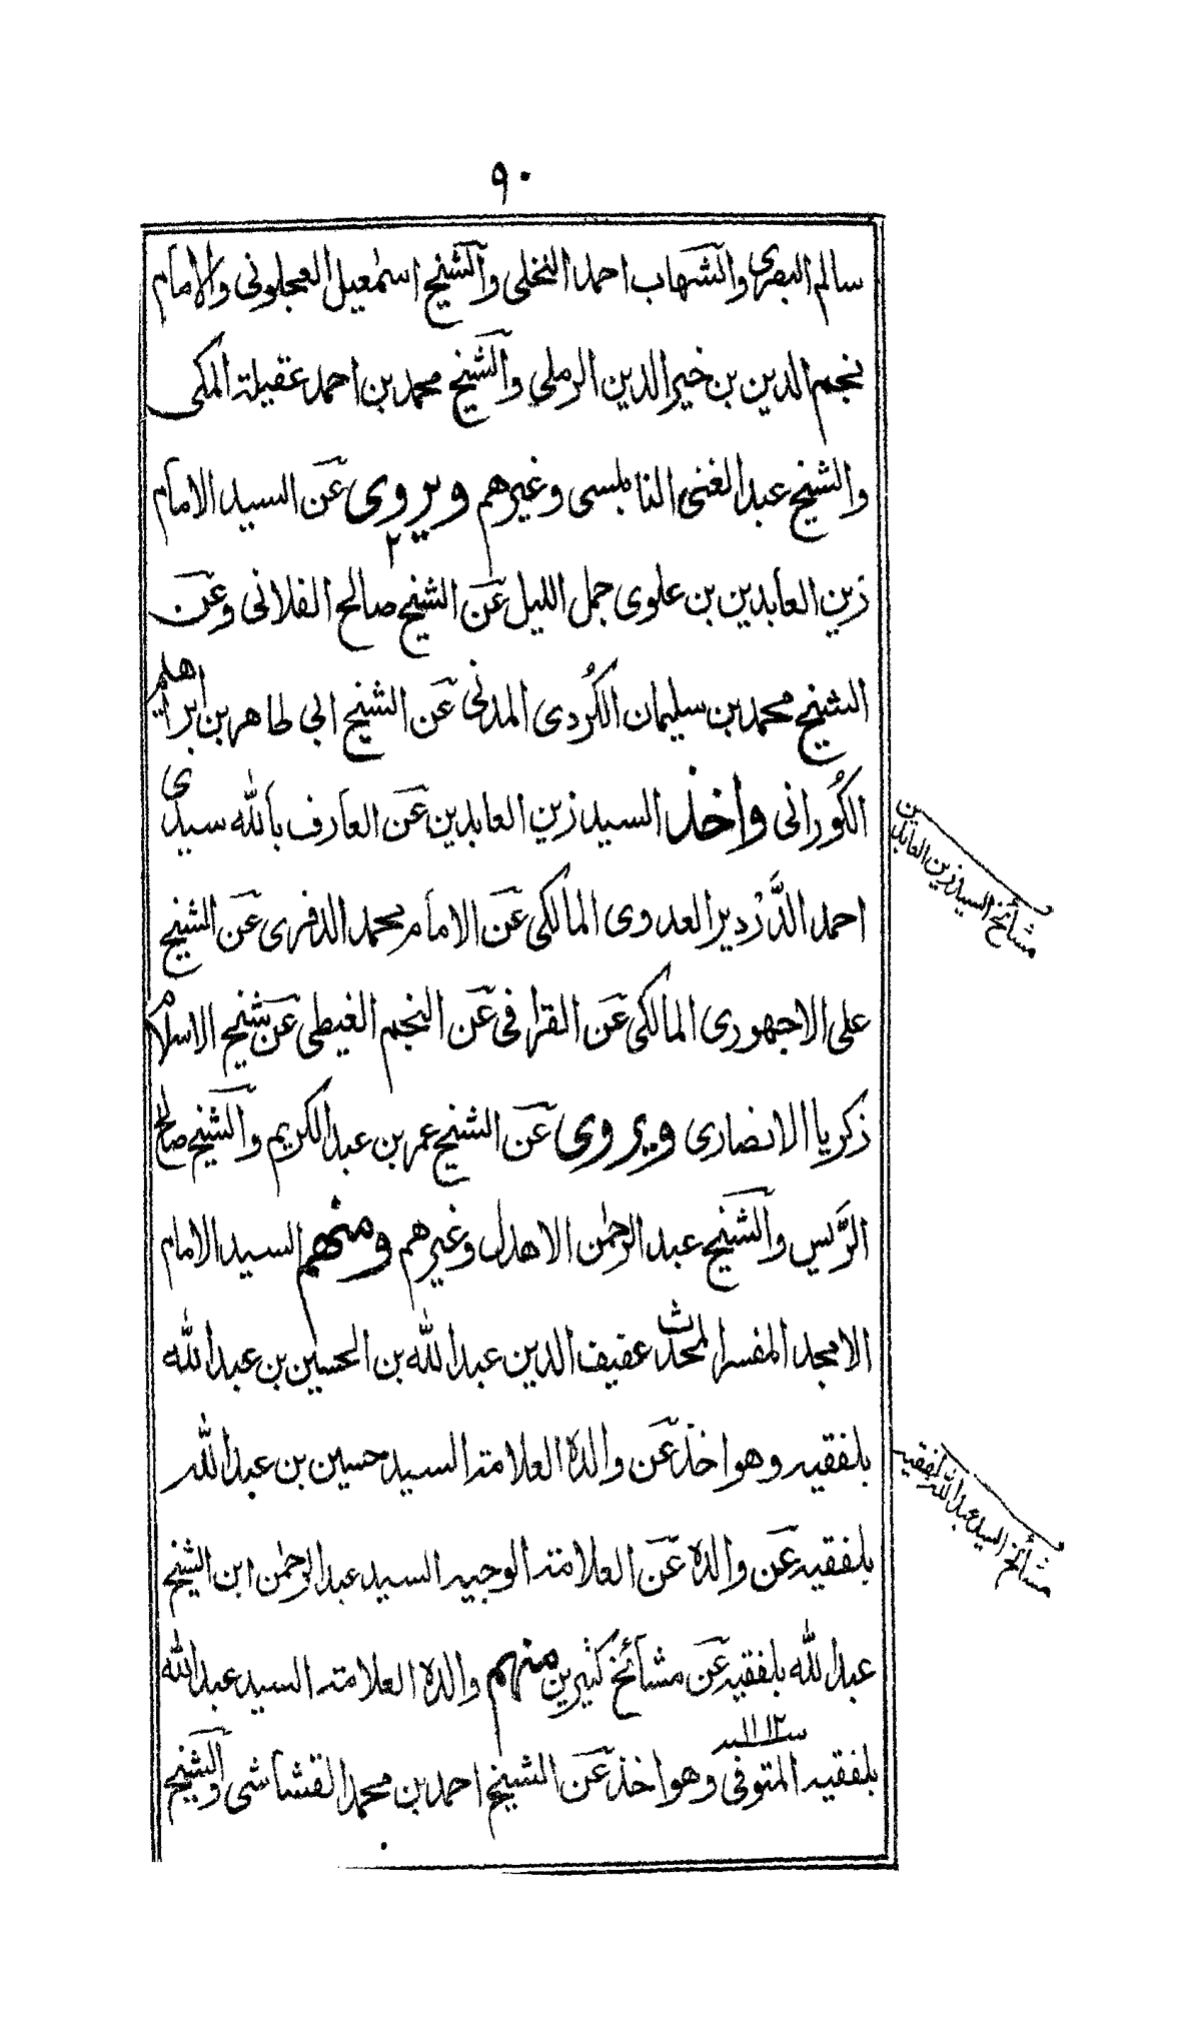 ٩٠
سالم البصري والشهاب احمد النخلي والشيخ اسمٰعيل العجلوني والامام
نجم الدين بن خير الدين الرملي والشيخ محمد بن احمد عقيلة المكي
والشيخ عبد الغني النابلسي وغيرهم ويروى عن السيد الامام
زين العابدين بن علوى جمل الليل عن الشيخ صالح الفلاني وعن
الشيخ محمد بن سليمان الكُردى المدني عن الشيخ ابى طاهر بن ابراهيم
الكُورانى واخذ السيد زين العابدين عن العارف بالله سيدى
احمد الدَّرْدير العدوى المالكى عن الامام محمد الدفرى عن الشيخ
على الاجهورى المالكى عن القرافى عن النجم الغيطى عن شيخ الاسلام
زكريا الانصارى ويروى عن الشيخ عمر بن عبد الكريم والشيخ صالح
الرَّيس والشيخ عبد الرحمٰن الاهدل وغيرهم ومنهم السيد الامام
الامجد المفسر المحدث عفيف الدين عبد الله بن الحسين بن عبد الله
بلفقيه وهو اخذ عن والده العلامة السيد حسين بن عبد الله
بلفقيه عن والده عن العلامة الوجيه السيد عبد الرحمٰن ابن الشيخ
عبد الله بلفقيه عن مشائخ كثيرين منهم والده العلامة السيد عبد الله
بلفقيه المتوفى سنة ١١١٢ وهو اخذ عن الشيخ احمد بن محمد القشاشى والشيخ
مشائخ السيد زين العابدين
مشائخ السيد عبد الله بلفقيه